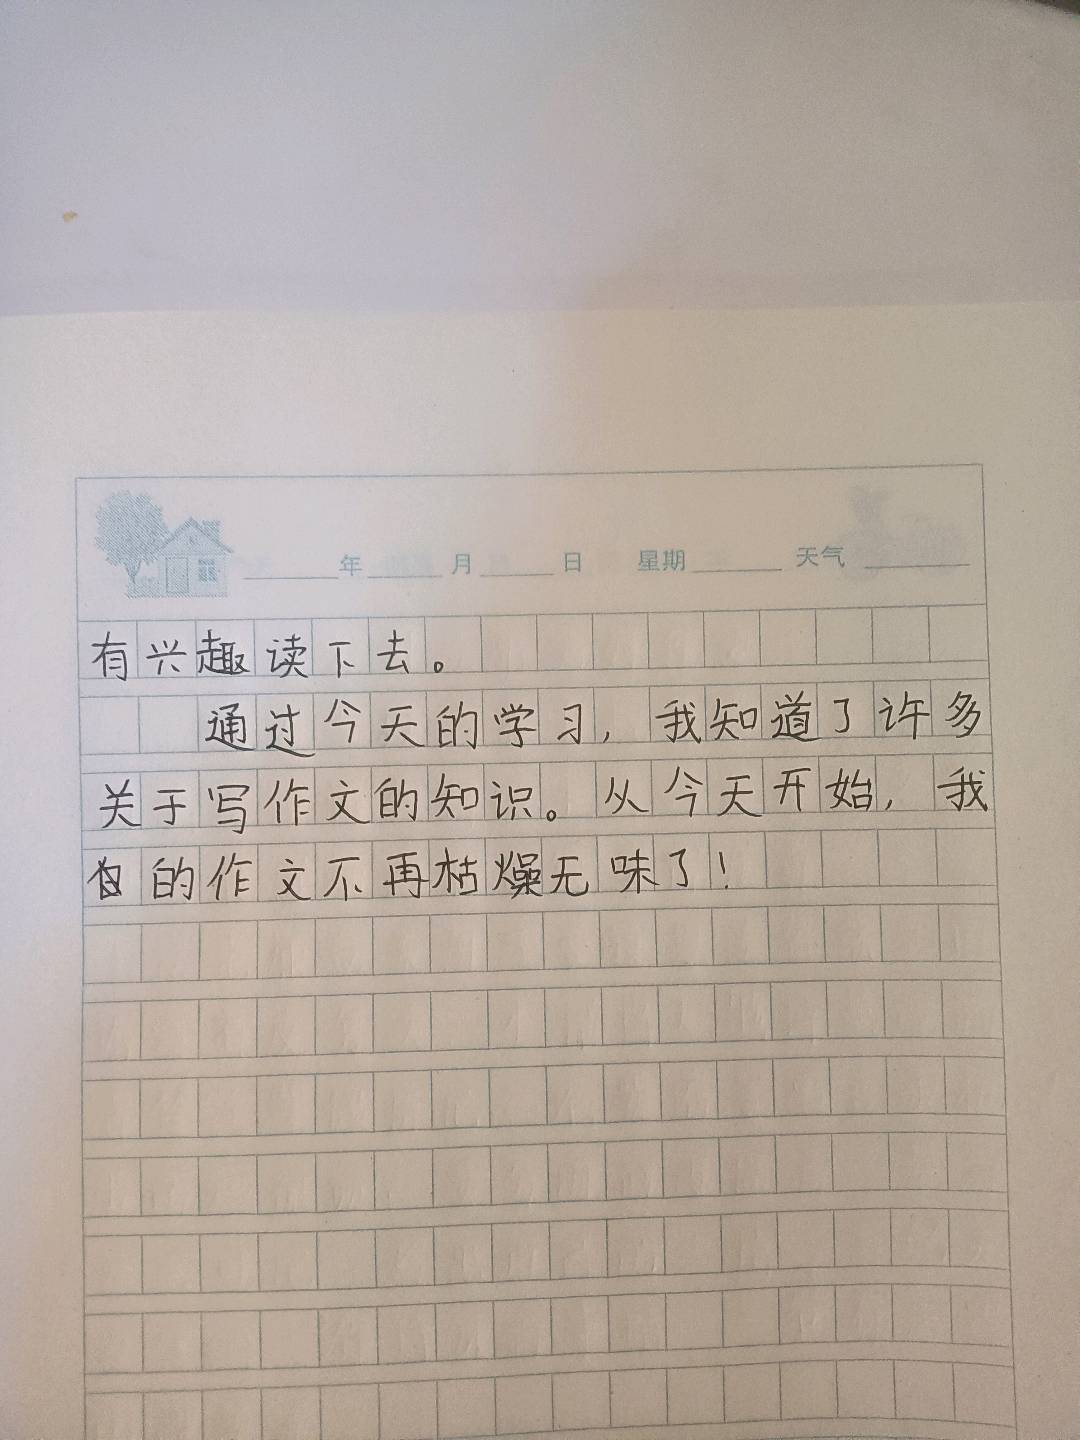 年 月 日 星期 天气
有兴趣读下去。
通过今天的学习，我知道了许多
关于写作文的知识。从今天开始，我
的作文不再枯燥无味了！